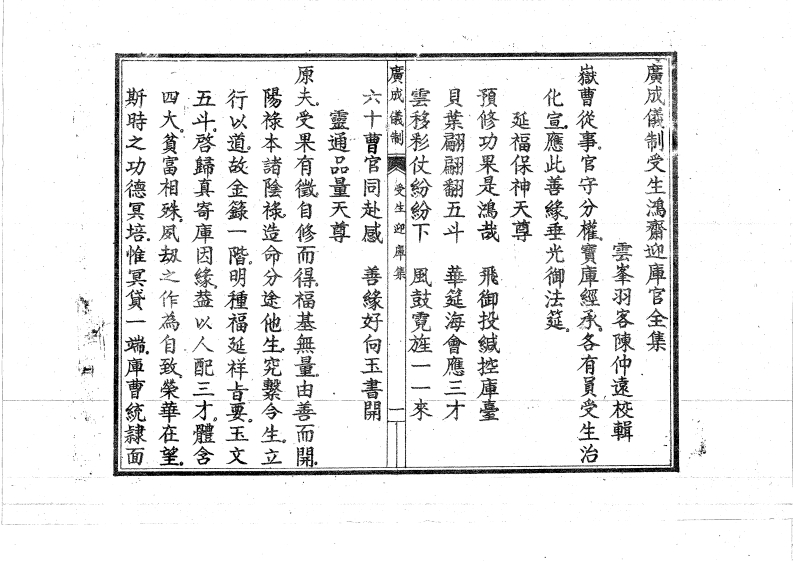 廣成儀制受生鴻齋迎庫官全集
雲峯羽客陳仲遠校輯
嶽曹從事。官守分權。寶庫經承。各有員受生治
化宣。應此善緣。垂光御法筵。
延福保神天尊
預修功果是鴻哉　飛御投緘控庫臺
貝葉翩翩翻五斗　華筵海會應三才
雲移彩仗紛紛下　風鼓霓旌一一來
廣成儀制　受生迎庫集　一
六十曹官同赴感　善緣好向玉書開
靈通品量天尊
原夫。受果有徵。自修而得。福基無量。由善而開。
陽祿本諸陰祿。造命分途他生。究繫今生。立
行以道。故金籙一階。明種福延祥旨要。玉文
五斗。啓歸真寄庫因緣。葢以人配三才。體含
四大。貧富相殊。夙刼之作為自致。榮華在望。
斯時之功德冥培。惟冥貸一端。庫曹統隸。面